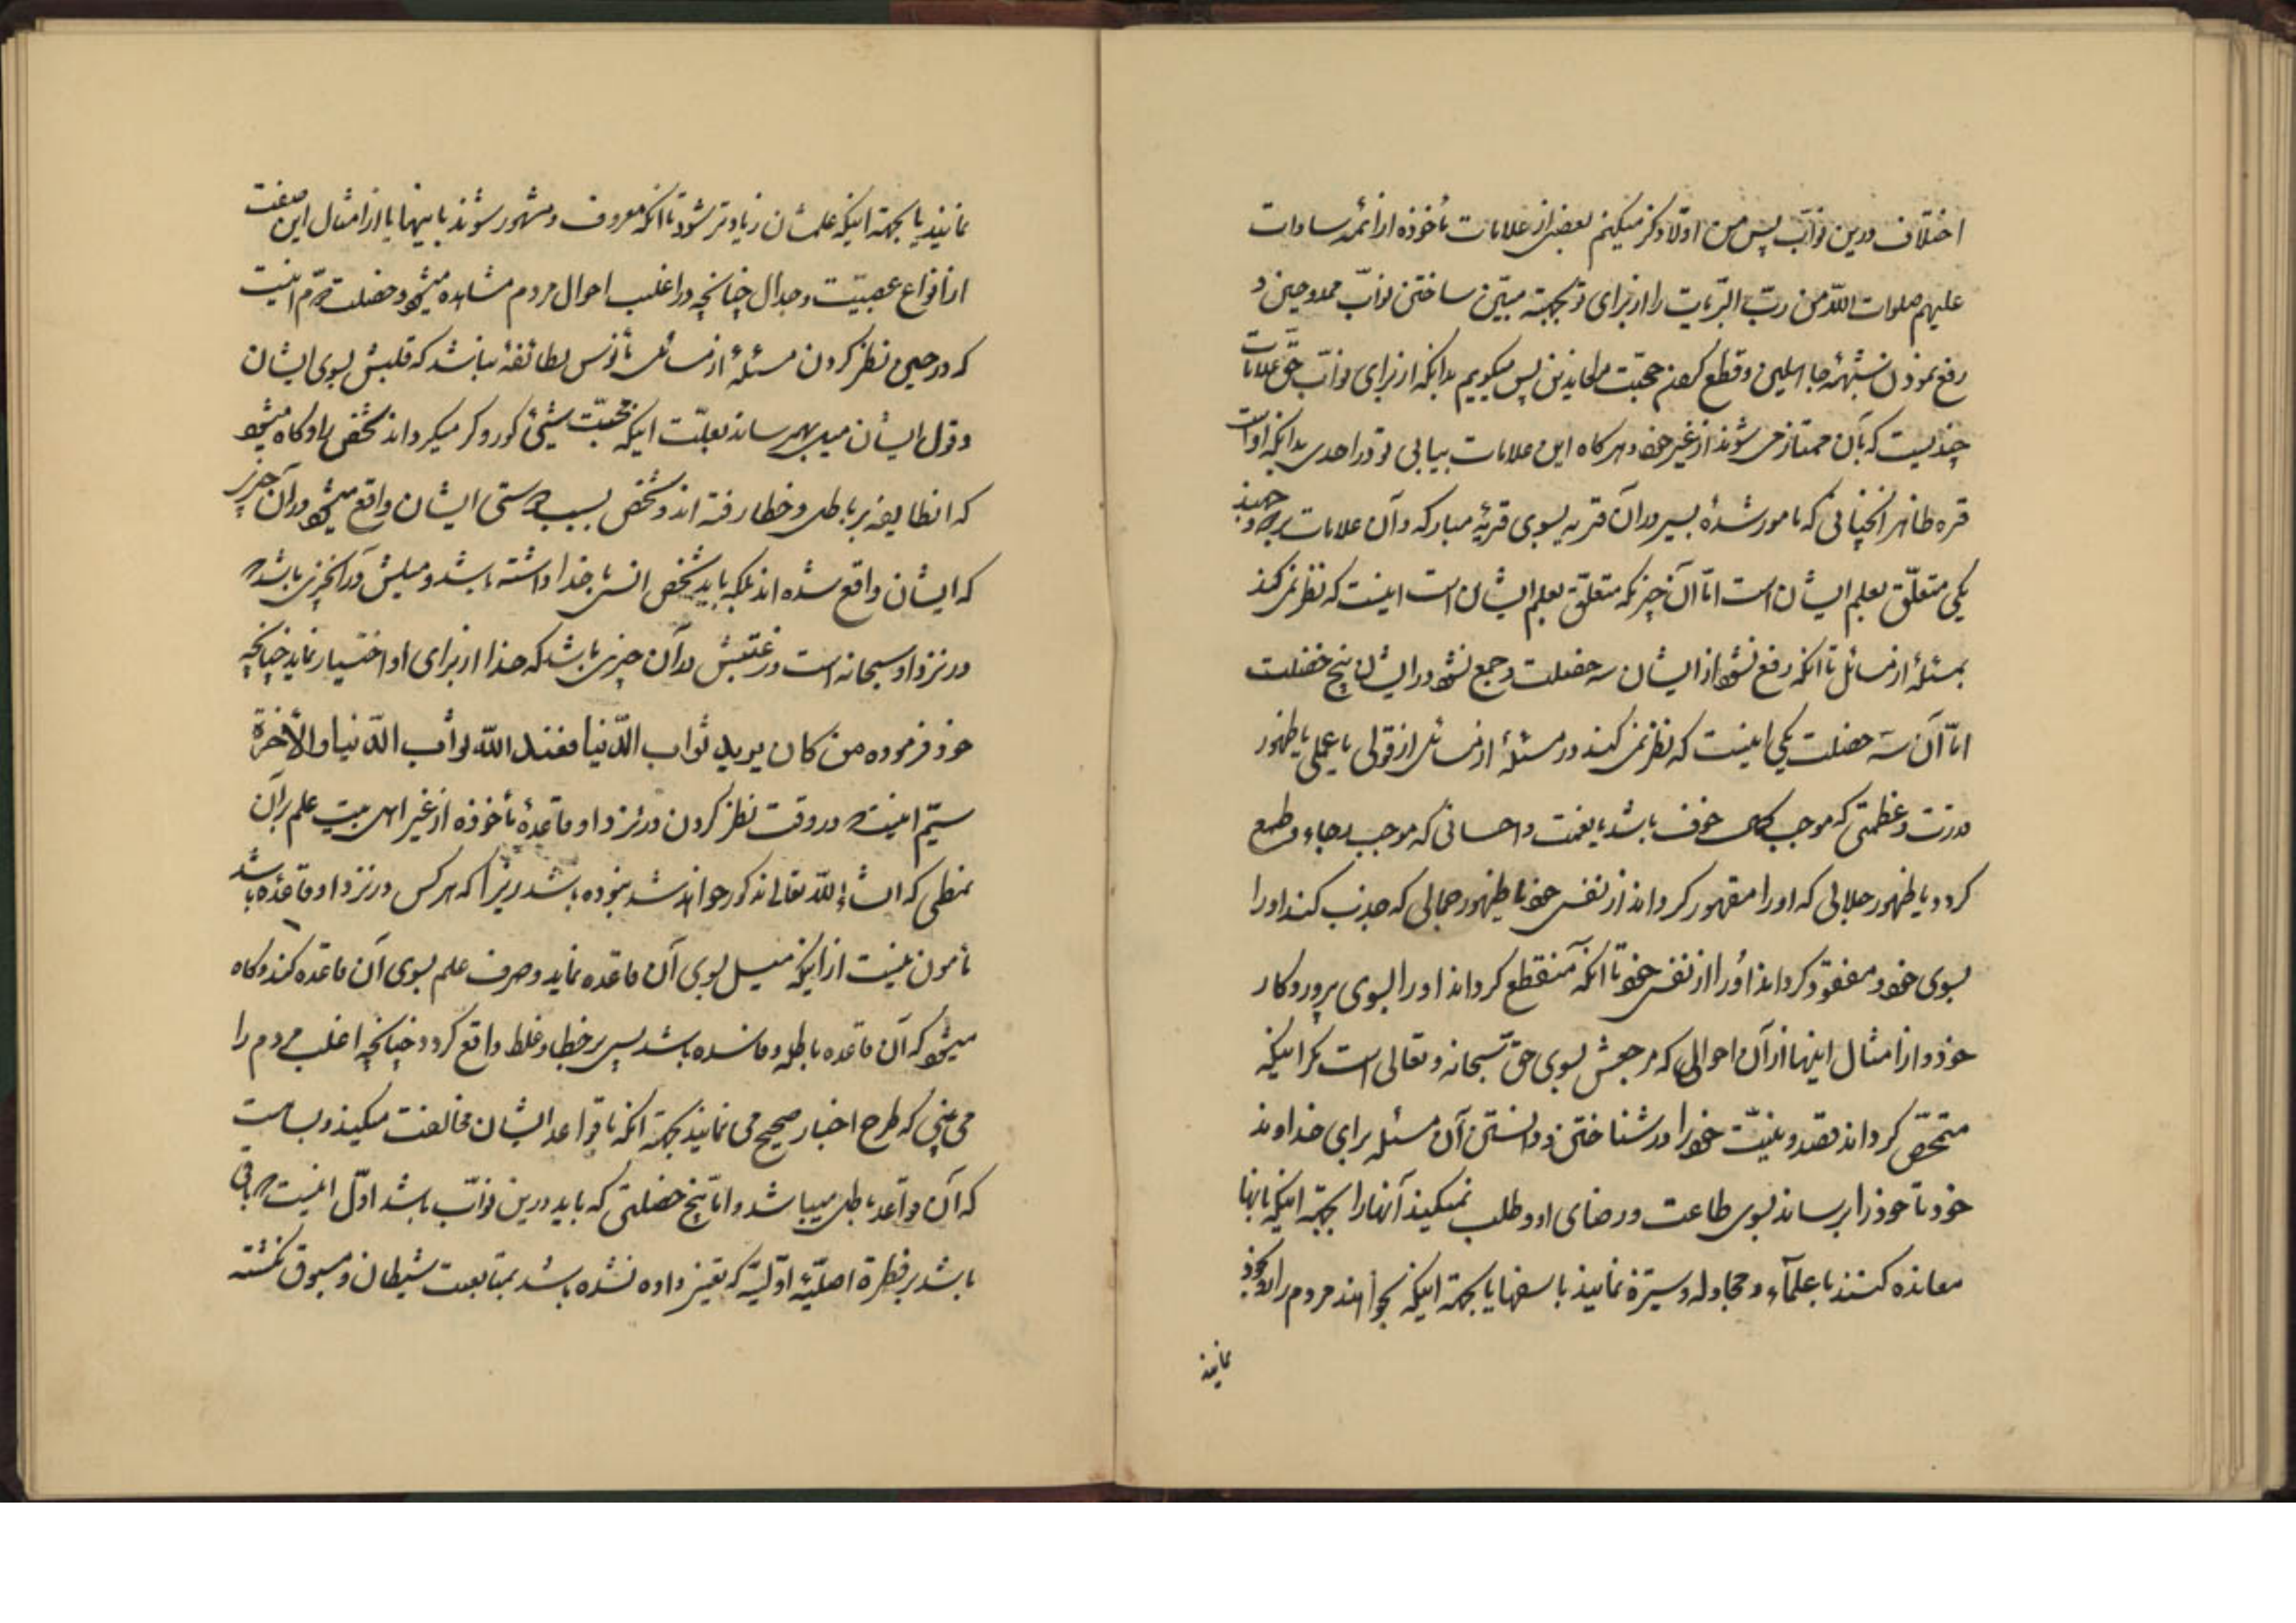 اختلاف درین نوّاب پس من اولا ذکر میکنم بعضی از علامات مأخوذه از ائمه سادات
علیهم صلوات اللّه من ربّ البریّات را از برای تو بجهة مبیّن ساختن نوّاب ممدوحین و
رفع نمودن شبههٔ جاهلین و قطع کردن حجّت معاندین پس میگویم بدانکه از برای نوّاب حقّ علامات
چندیست که بآن ممتاز می شوند از غیر خود و هر کاه این علامات بیابی تو در احدی بدانکه اواست
قره ظاهر انچنانی که مامور شدهٔ بسیر در آن قریه بسوی قریهٔ مبارکه و آن علامات بر دو وجهند
یکی متعلّق بعلم ایشان است امّا آن چیزیکه متعلّق بعلم ایشان است اینست که نظر نمی کنند
بمسئلهٔ از مسائل تا آنکه رفع نشود از ایشان سه خصلت و جمع نشود در ایشان پنج خصلت
امّا آن سه خصلت یکی اینست که نظر نمی کنند در مسئلهٔ از مسائل از قولی یا عملی یا ظهور
قدرت و عظمتی که موجب خوف باشد یا نعمت و احسانی که موجب رجاء و طمع
کردد یا ظهور جلالی که او را مقهور کرداند از نفس خود یا ظهور جمالی که جذب کند او را
بسوی خود و مفقود کرداند او را از نفس خود تا آنکه منقطع کرداند او را بسوی پروردکار
خود و از امثال اینها از آن احوالی که مرجعش بسوی حقّ سبحانه و تعالی است مکر اینکه
متمحّض کرداند قصد و نیّت خود را در شناختن و دانستن آن مسئله برای خداوند
خود تا خود را برساند بسوی طاعت و رضای او و طلب نمیکنند آنها را بجهة اینکه بانها
معانده کنند با علمآء و مجادله و ستیزه نمایند با سفها یا بجهة اینکه بخوانند مردم را بسوی خود
نمایند
نمایند یا بجهة اینکه علمشان زیادتر شود تا آنکه معروف و مشهور شوند باینها یا از امثال این صفت
از انواع عصبیّت و جدال چنانچه در اغلب احوال مردم مشاهده میشود و خصلت دوّم اینست
که در حین نظر کردن مسئلهٔ از مسائل مأنوس بطائفهٔ نباشد که قلبش بسوی ایشان
و قول ایشان میل بهم رساند بعلّت اینکه محبّت شیئ کور و کر میکرداند شخص را و کاه میشود
که انطایفه بر باطل و خطا رفته اند و شخص بسبب دوستی ایشان واقع میشود در آن چیزی
که ایشان واقع شده اند بلکه باید شخص انس با خدا داشته باشد و میلش در آنچیزی باشد که
در نزد او سبحانه است و رغبتش در آن چیزی باشد که خدا از برای او اختیار نماید چنانچه
خود فرموده من کان یرید ثواب الدّنیا فعند اللّه ثواب الدّنیا والآخرة
سیّم اینست که در وقت نظر کردن در نزد او قاعدهٔ مأخوذه از غیر اهل بیت علم بر آن
نمطی که انشاء اللّه تعالی مذکور خواهد شد نبوده باشد زیرا که هر کس در نزد او قاعدهٔ باشد
مأمون نیست از اینکه میل بسوی آن قاعده نماید و صرف علم بسوی آن قاعده کند و کاه
میشود که آن قاعده باطل و فاسده باشد پس بر خطا و غلط واقع کردد چنانچه اغلب مردم را
می بینی که طرح اخبار صحیح می نمایند بجهة آنکه با قواعد ایشان مخالفت میکنند و بسا هست
که آن قواعد باطل میباشد و امّا پنج خصلتی که باید درین نوّاب باشد اوّل اینست که باقی
باشد بر فطرة اصلیّهٔ اوّلیّه که تغییر داده نشده باشد بمتابعت شیطان و مسبوق نکشته